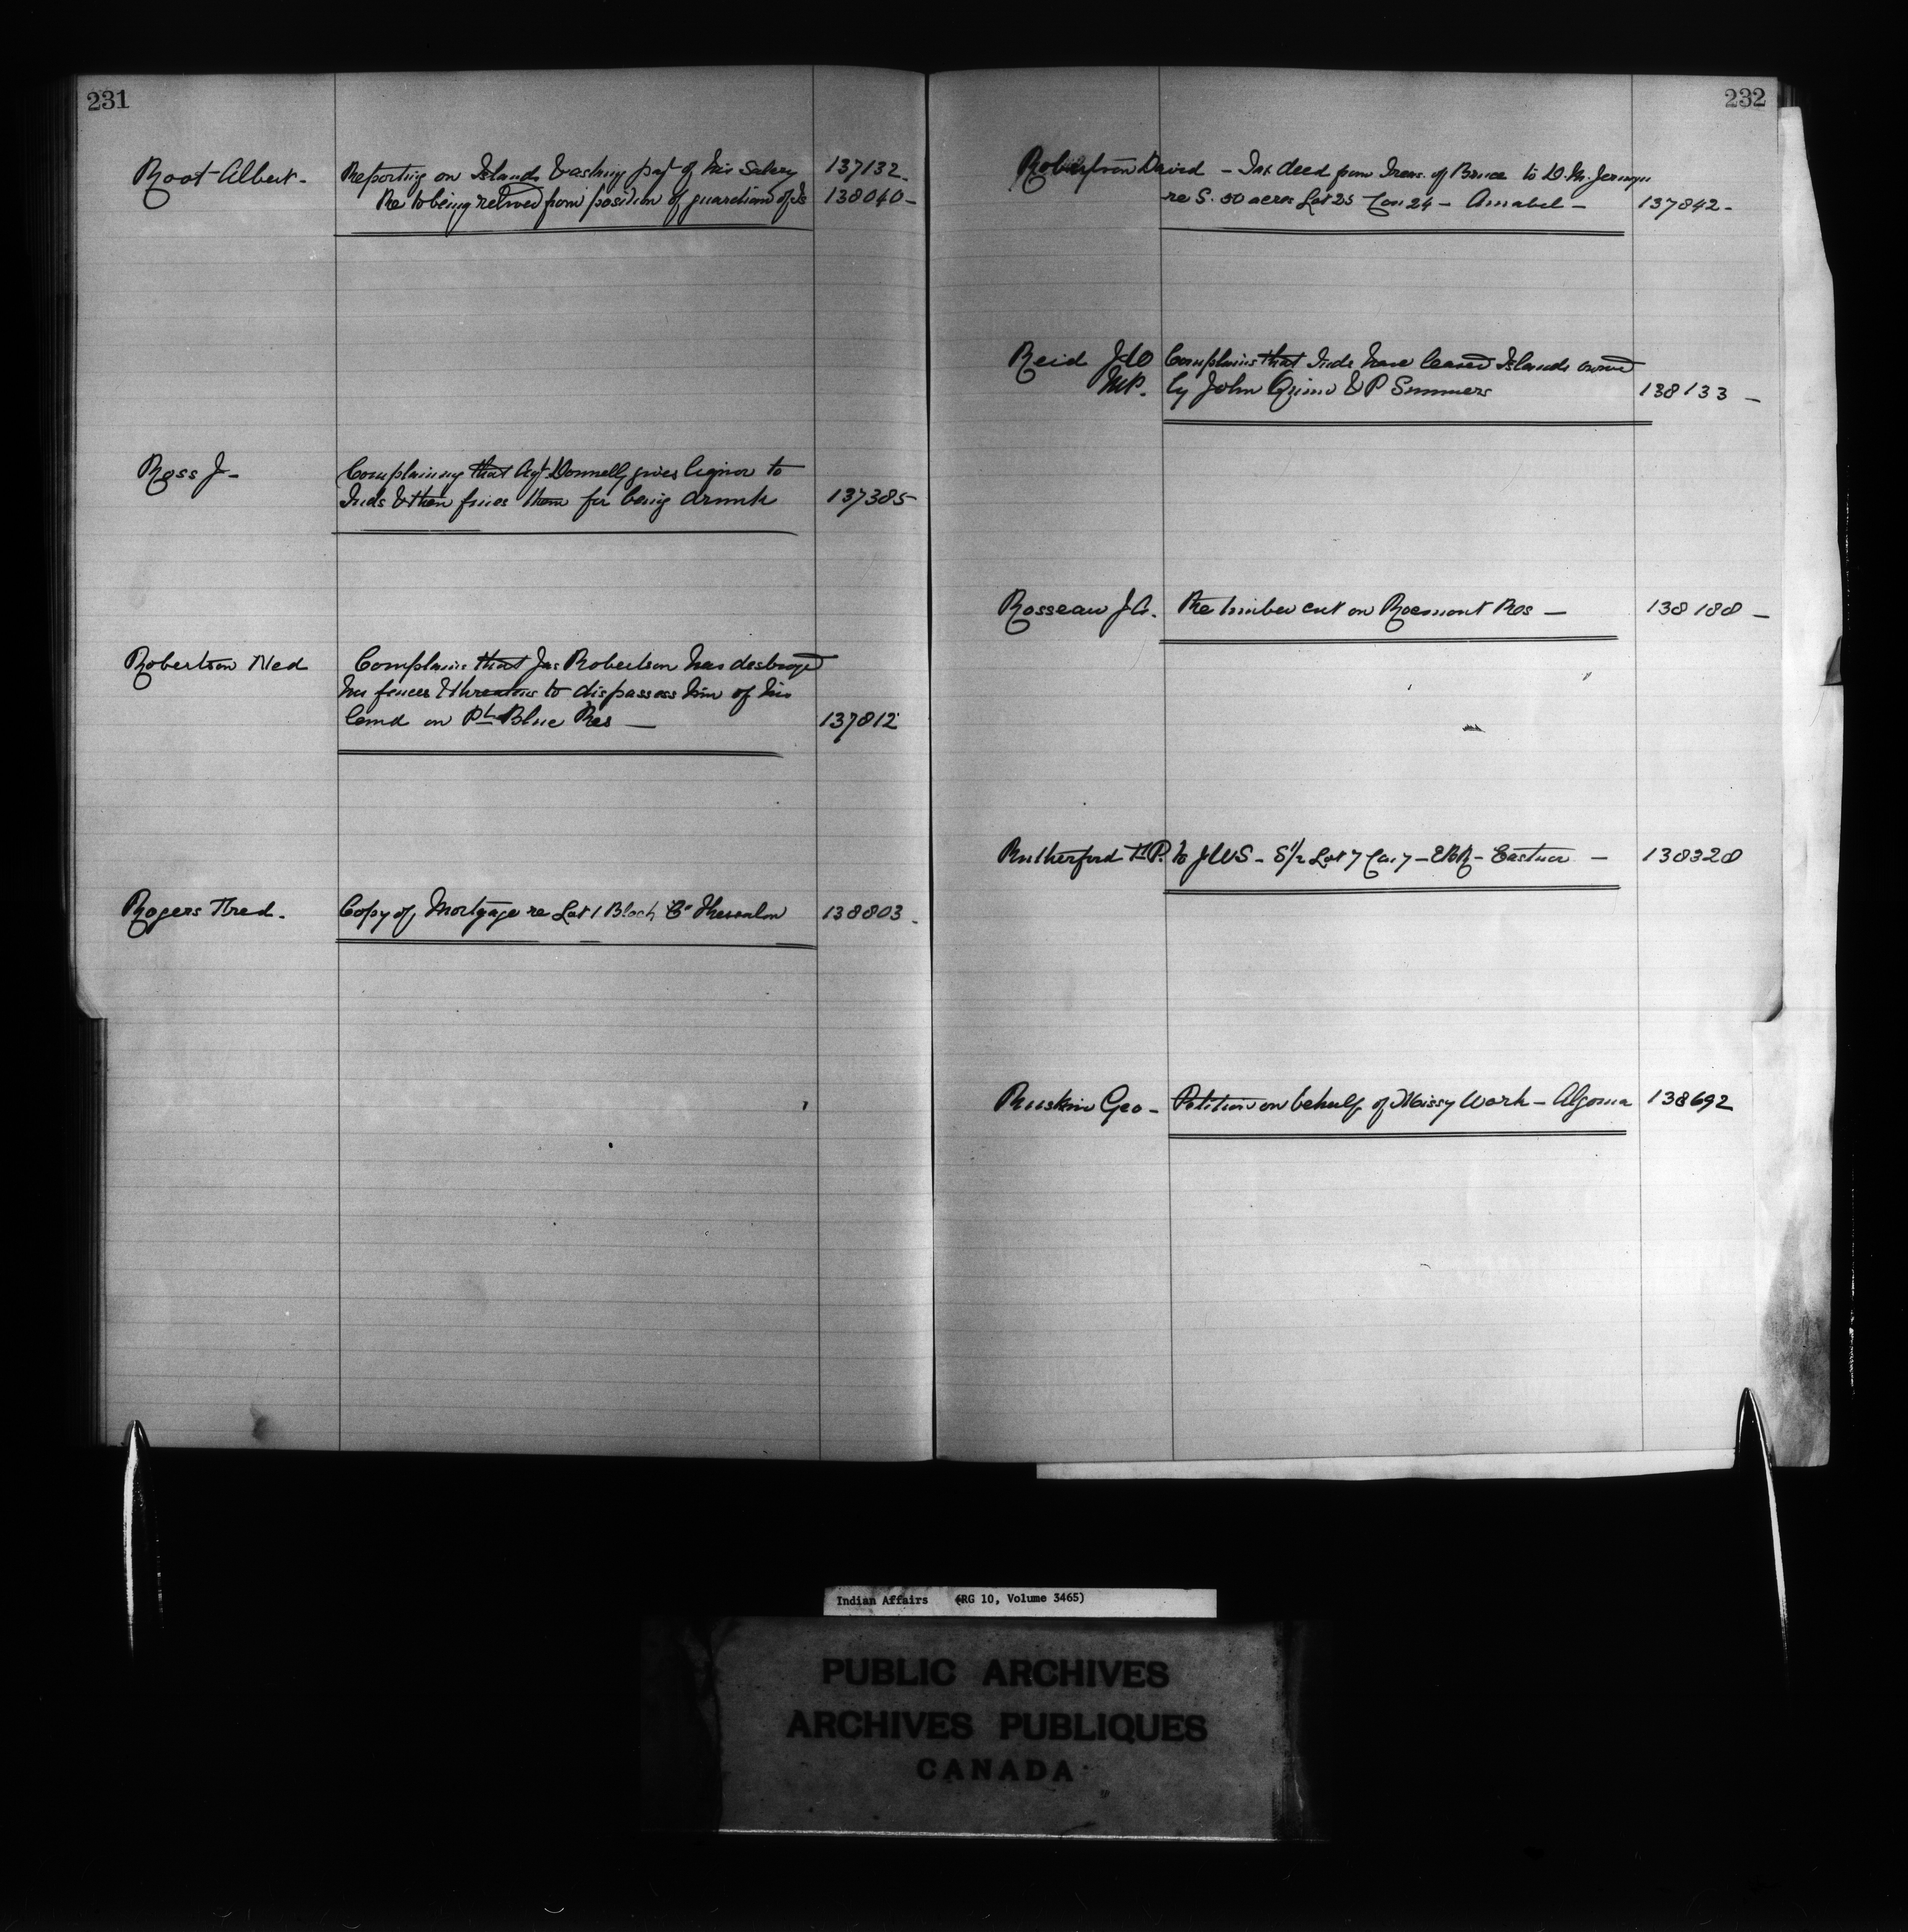 231
Root Albert - Reporting on Islands & asking pay't of his Salary 137132 -
Re to being relieved from position of guardian of Is 138040 -
Ross J - Complaining that Agt Donnelly gives liquor to
Inds & then fines them for being drunk 137385
Robertson Ned Complains that Jas Robertson has destroyed
his fences & threatens to dispossess him of his
land on Pt Blue Res - 137812
Rogers Fred. Copy of Mortgage re Lot 1 Block "C" Thessalon 138803 -
232
Robertson David - Tax deed from Treas. of Bruce to D. M. Jermyn
re S. 50 acres Lot 25 Con 24 - Amabel - 137842 -
Reid J D Complains that Inds have leased Islands owned
M.P. by John Quinn & P Summers 138133 -
Rosseau J A. Re timber cut on Res - 138188 -
Rutherford to JWS - S 1/2 Lot 7 Con 7 - EBR - Eastnor - 138328
Ruskin Geo - Petition on behalf of Missy Work - Algoma 138692
Indian Affairs (RG 10, Volume 3465)
PUBLIC ARCHIVES
ARCHIVES PUBLIQUES
CANADA